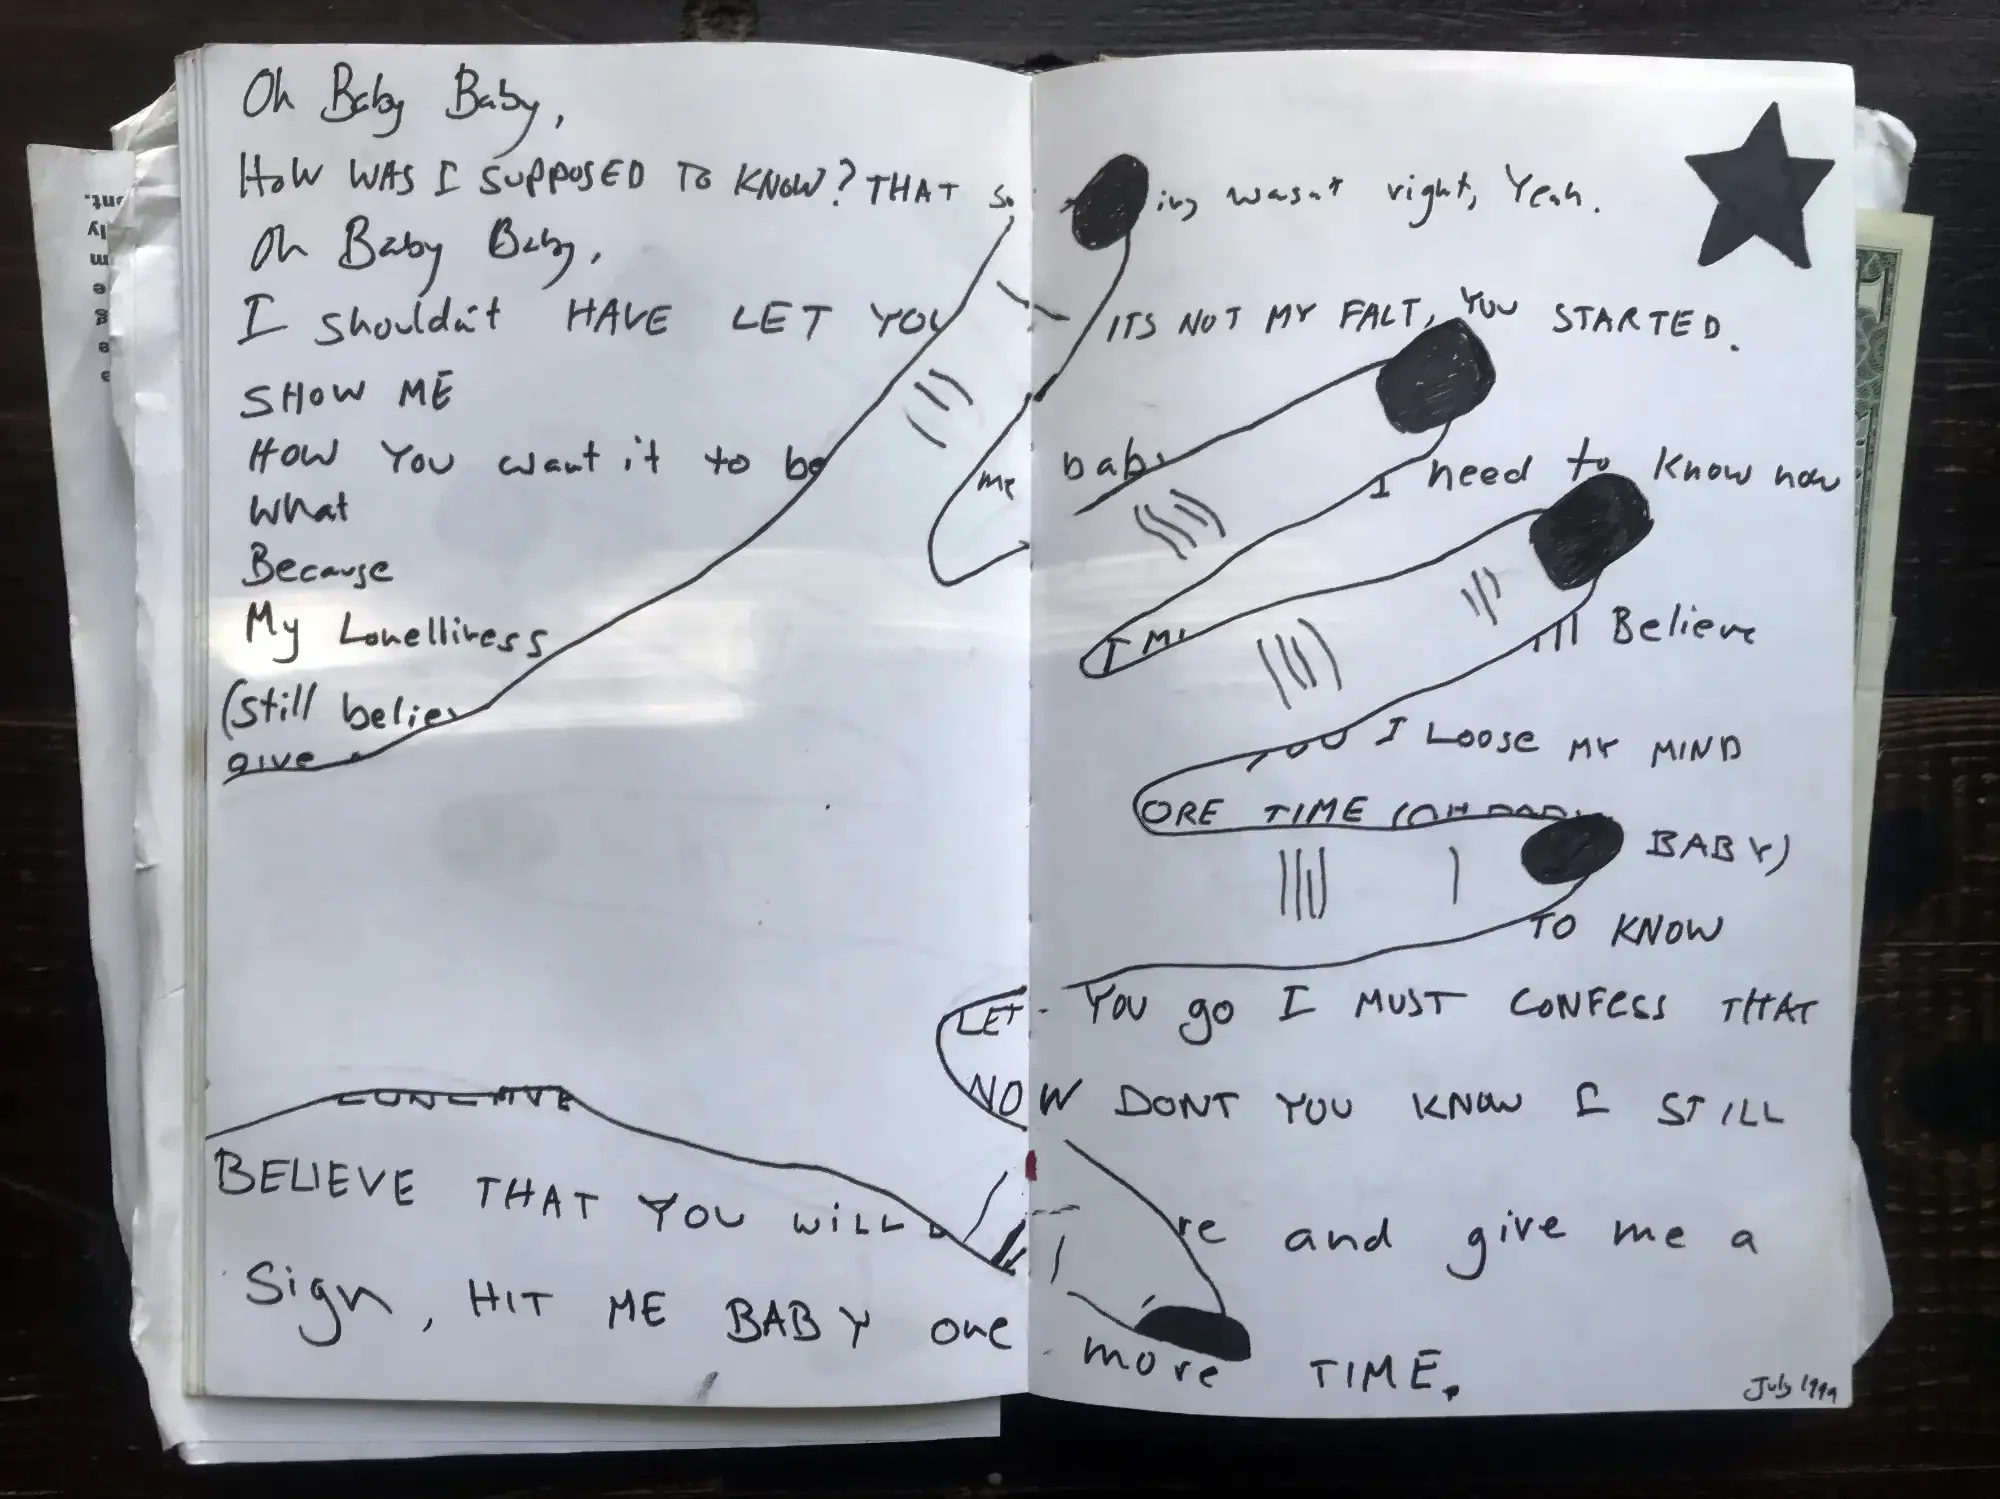 Oh Baby Baby,
HOW WAS I SUPPOSED TO KNOW? THAT So ing wasnt right, Yeah.
Oh Baby Baby,
I shouldn't HAVE LET YOU ITS NOT MY FALT, YOU STARTED.
SHOW ME
HOW YOU want it to be me baby I need to know now
What
Because
My Lonelliness I M Believe
(still believ I LOOSE MY MIND
give ORE TIME (OH BABY BABY)
TO KNOW
LET YOU go I MUST CONFESS THAT
NOW DONT YOU KNOW I STILL
BELIEVE THAT YOU WILL re and give me a
Sign, HIT ME BABY one more TIME.
July 1999